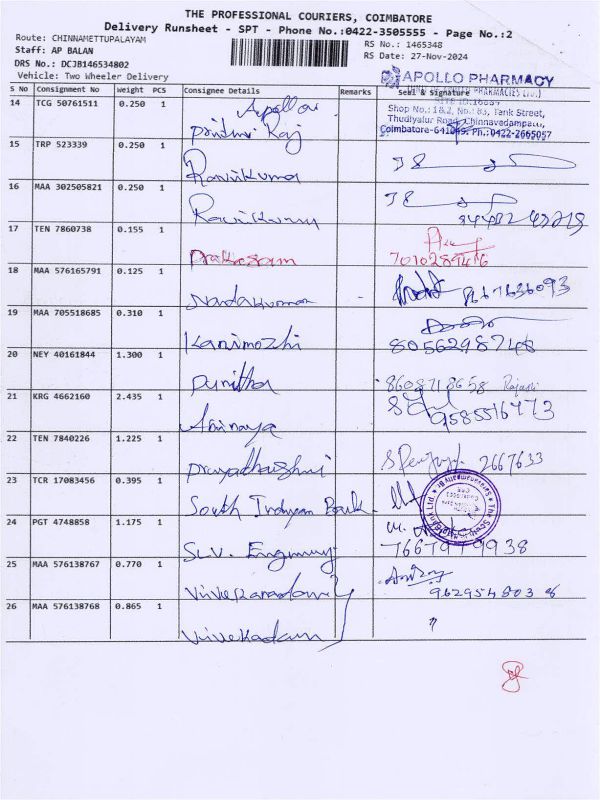 THE PROFESSIONAL COURIERS, COIMBATORE
Delivery Runsheet - SPT - Phone No.:0422-3505555 - Page No.:2
Route: CHINNAMETTUPALAYAM
RS No.: 1465348
Staff: AP BALAN
RS Date: 27-Nov-2024
DRS No.: DCJB146534802
Vehicle: Two Wheeler Delivery
APOLLO PHARMACY
S No Consignment No Weight PCS Consignee Details Remarks Seal & Signature
Shop No.: 1&2, No.: 83, Tank Street,
Thudiyalur Road, Chinnavedampatti,
Coimbatore-641049. Ph.:0422-2665057
14 TCG 50761511 0.250 1 Apollo
Raj
15 TRP 523339 0.250 1 Ravikumar
16 MAA 302505821 0.250 1 Ravikumar
17 TEN 7860738 0.155 1 Prakasam
18 MAA 576165791 0.125 1 Nandakumar 8667636093
19 MAA 705518685 0.310 1 Kanimozhi 8056298748
20 NEY 40161844 1.300 1 Punitha 8608718658
21 KRG 4662160 2.435 1 Abinaya 9585516473
22 TEN 7840226 1.225 1 2667633
23 TCR 17083456 0.395 1 South Indian Bank
24 PGT 4748858 1.175 1 S.V. 7667979938
25 MAA 576138767 0.770 1
26 MAA 576138768 0.865 1
"